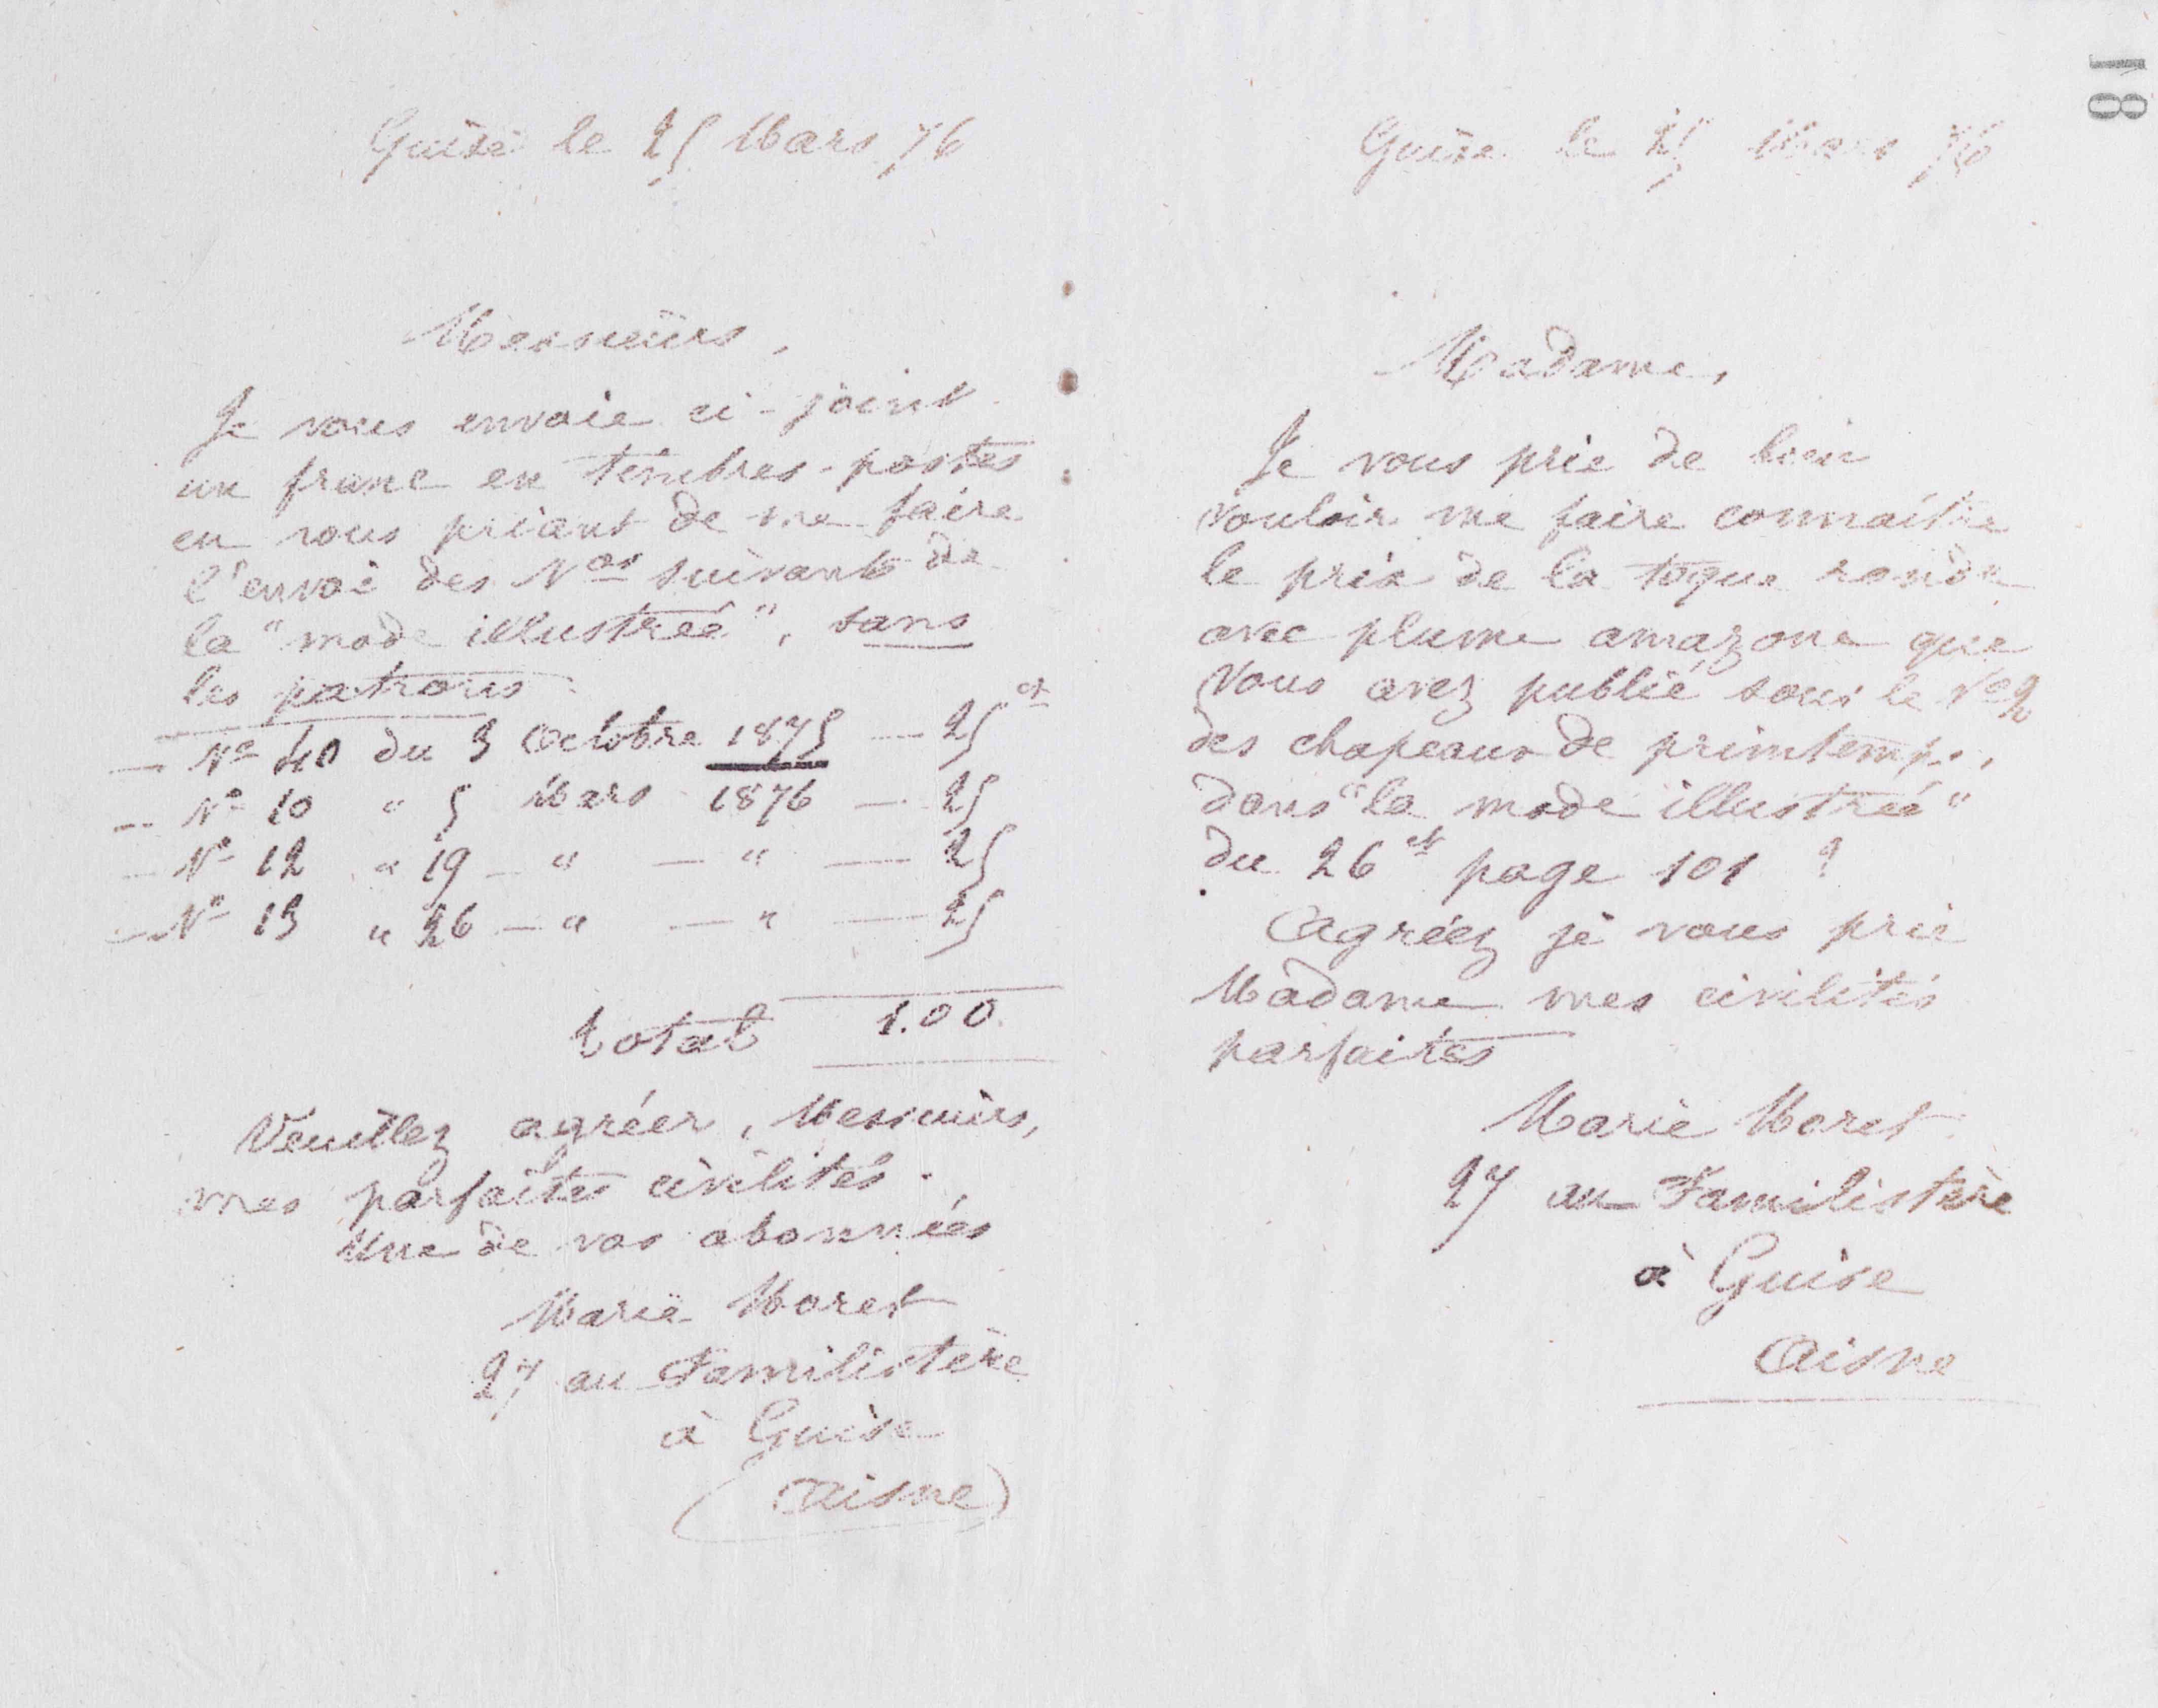 Guise le 25 Mars 76
Messieurs,
Je vous envoie ci-joint
un franc en timbres-postes
en vous priant de me faire
l'envoi des Nos suivants de
la "mode illustrée", sans
les patrons
— No 40 du 3 Octobre 1875 — 25 ct
— No 10 " 5 Mars 1876 — 25
— No 12 " 19 — " — " — 25
— No 13 " 26 — " — " — 25
total 1.00
Veuillez agréer, Messieurs,
mes parfaites civilités.
Une de vos abonnées
Marie Moret
27 au Familistère
à Guise
(Aisne)
18
Guise le 25 Mars 76
Madame,
Je vous prie de bien
vouloir me faire connaître
le prix de la toque ronde
avec plume amazone que
vous avez publié sous le No 2
des chapeaux de printemps,
dans "la mode illustrée"
du 26 ct page 101 ?
Agréez je vous prie
Madame mes civilités
parfaites
Marie Moret
27 au Familistère
à Guise
Aisne